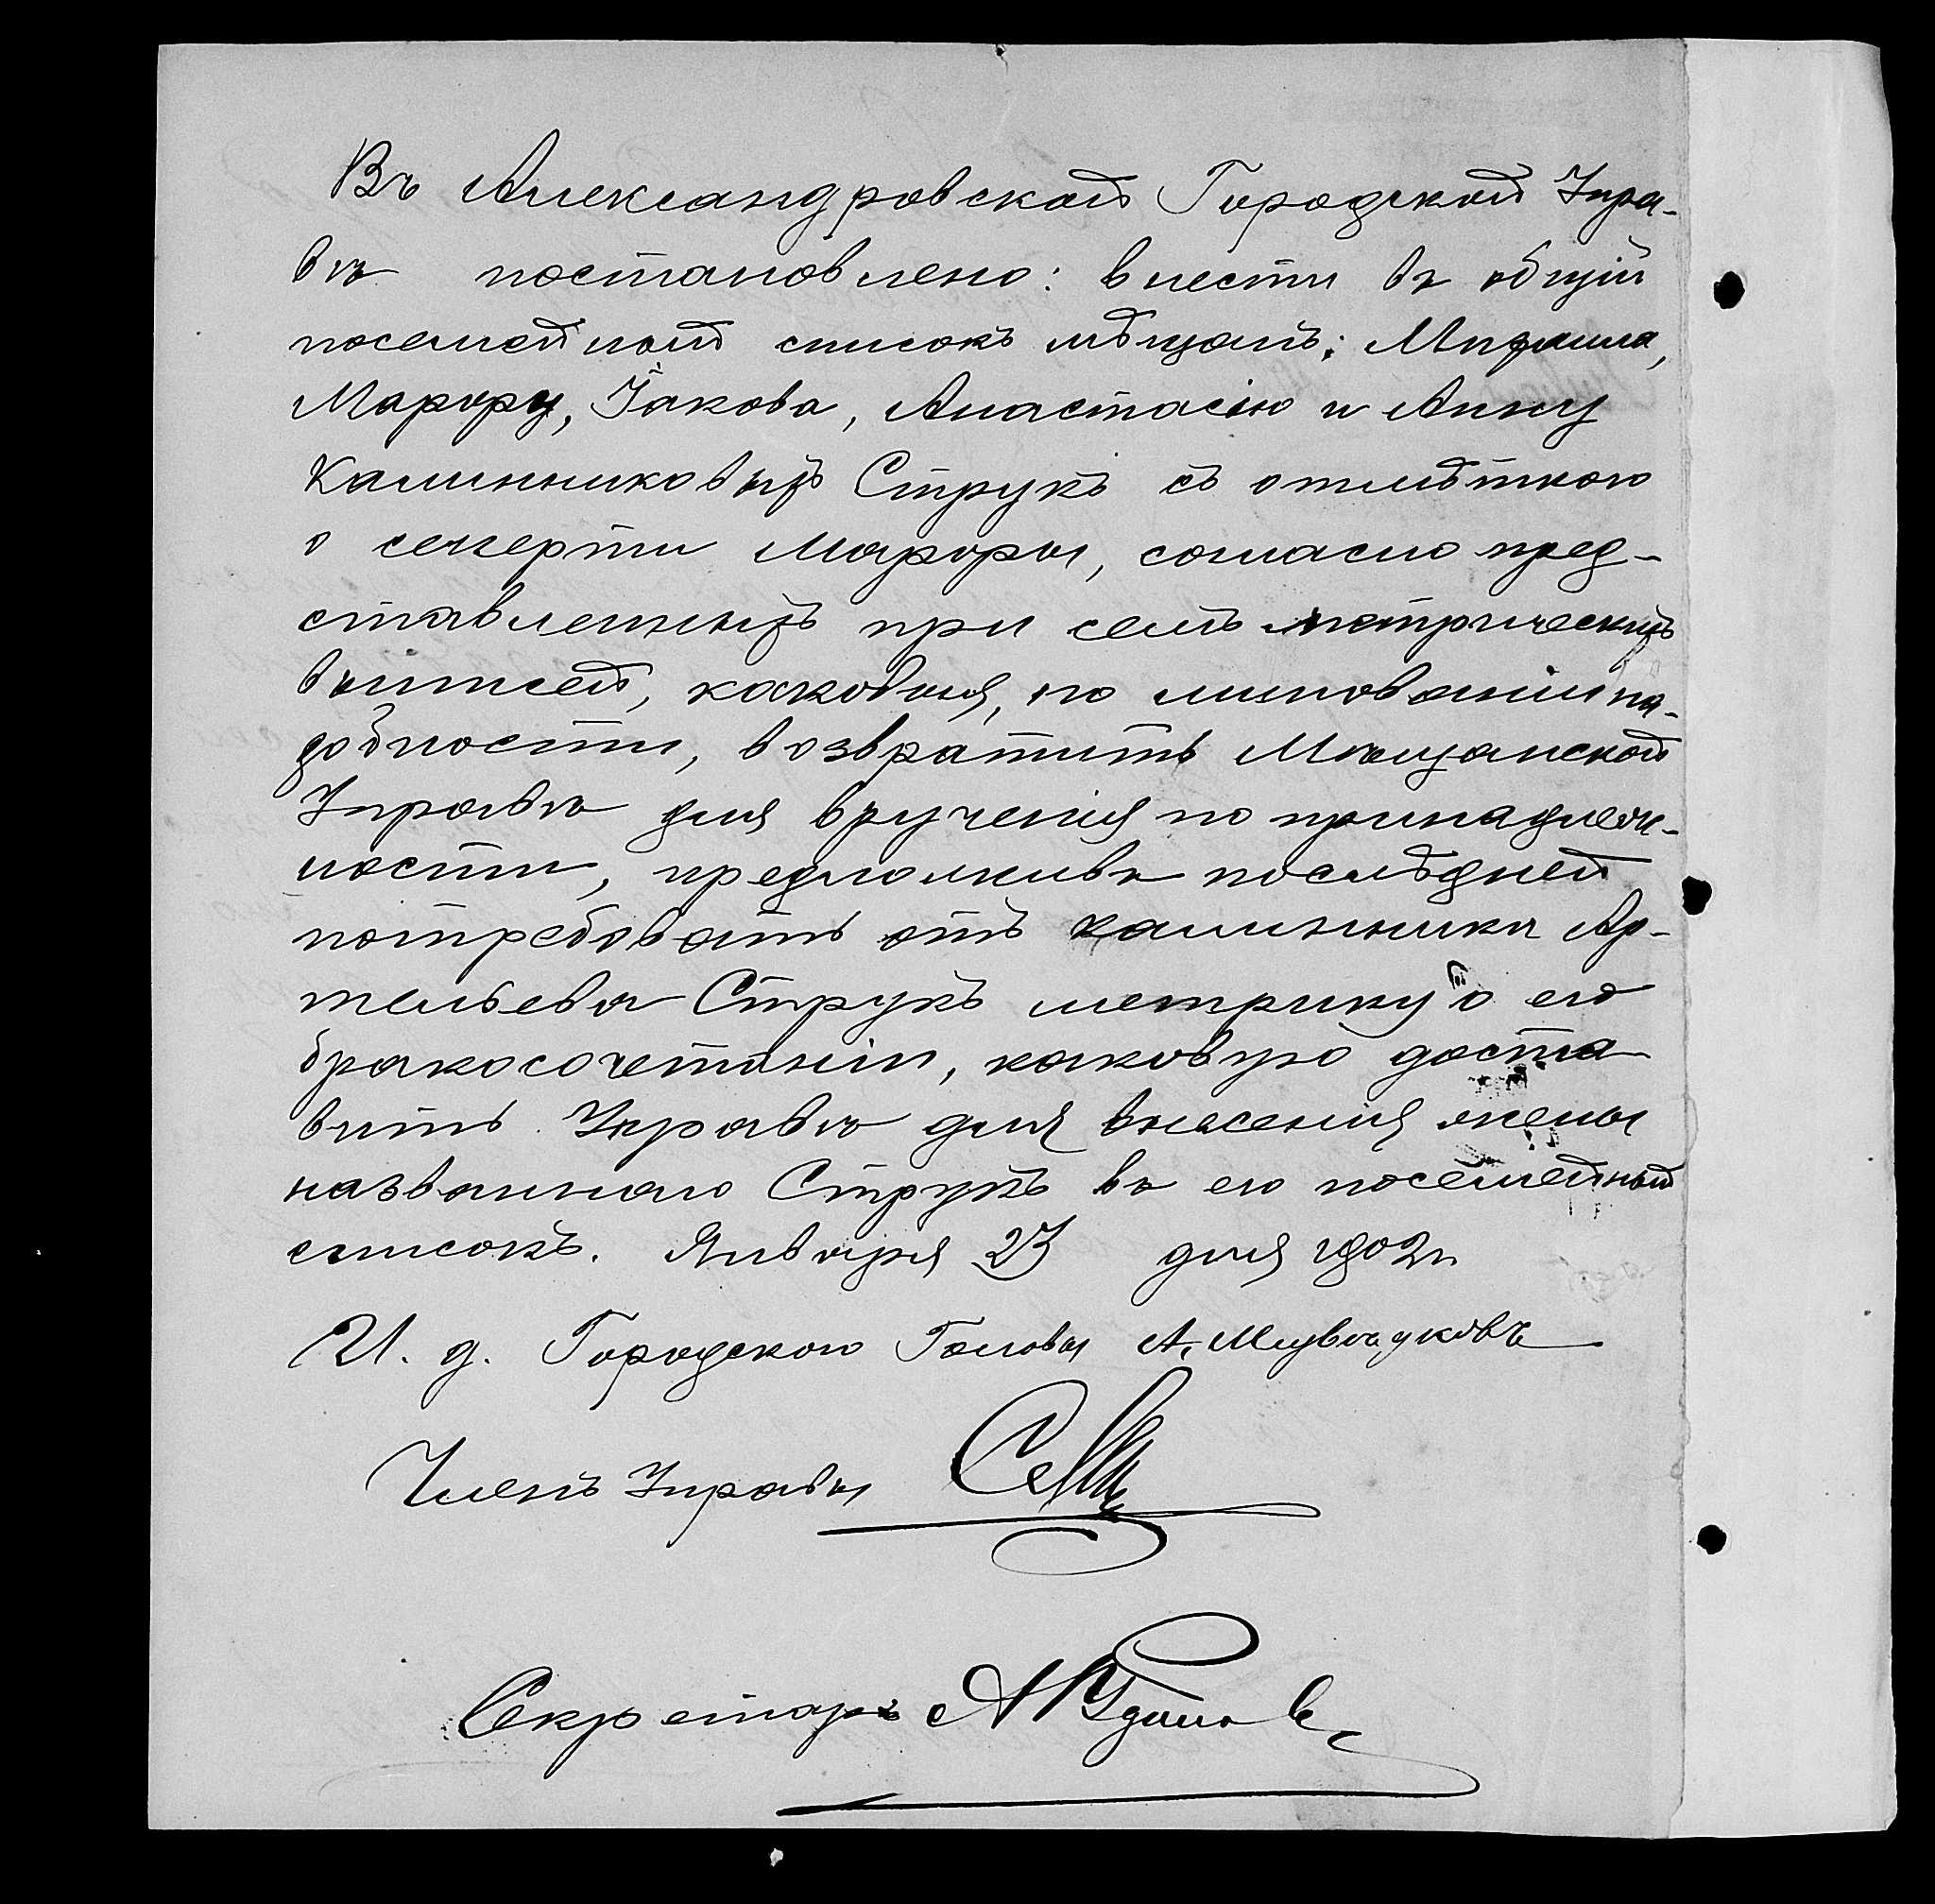 Въ Александровской Городской Упра-
вѣ постановлено: внести въ общій
посемейный списокъ мѣщанъ: Михаила,
Марѳу, Іакова, Анастасію и Анну
Калинниковыхъ Струкъ съ отмѣткою
о смерти Марѳы, согласно пред-
ставленныхъ при семъ метрическихъ
выписей, каковыя, по минованіи на-
добности, возвратить Мѣщанской
Управѣ для врученія по принадлеж-
ности, предложивъ послѣдней
потребовать отъ Калинника Ар-
темьева Струкъ метрику о его
бракосочетаніи, каковую доста
вить Управѣ для внесенія жены
названнаго Струкъ въ его посемейный
списокъ. Января 23 дня 1902 г.
И. д. Городского Головы А.
Членъ Управы
Секретарь А